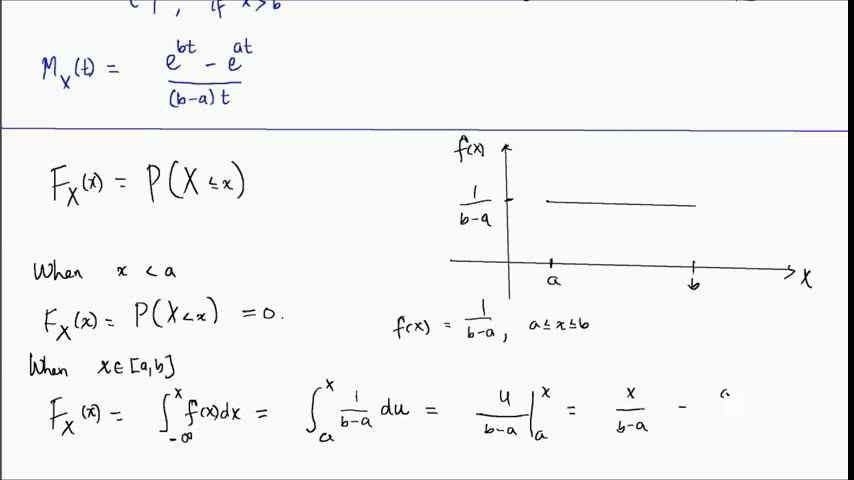 1, if x > b
M_X(t) = (e^{bt} - e^{at}) / ((b-a)t)
F_X(x) = P(X ≤ x)
f(x)
1/(b-a)
a b x
When x < a
F_X(x) = P(X < x) = 0.
f(x) = 1/(b-a), a ≤ x ≤ b
When x ∈ [a,b]
F_X(x) = ∫_{-∞}^{x} f(x)dx = ∫_{a}^{x} 1/(b-a) du = u/(b-a) |_{a}^{x} = x/(b-a) -